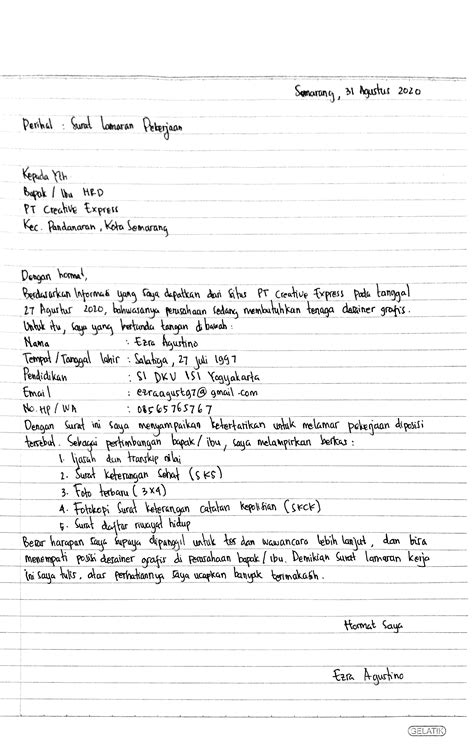 Semarang, 31 Agustus 2020
Perihal : Surat lamaran Pekerjaan
Kepada Yth
Bapak / Ibu HRD
PT Creative Express
Kec. Pandanaran, Kota Semarang
Dengan hormat,
Berdasarkan Informasi yang saya dapatkan dari situs PT Creative Express Pada tanggal
27 Agustus 2020, bahwasanya perusahaan sedang membutuhkan tenaga desainer grafis.
Untuk itu, saya yang bertanda tangan di bawah :
Nama : Ezra Agustino
Tempat / Tanggal lahir : Salatiga, 27 juli 1997
Pendidikan : S1 DKV ISI Yogyakarta
Email : ezraagust97@gmail.com
No. HP / WA : 08565765767
Dengan Surat ini saya menyampaikan ketertarikan untuk melamar pekerjaan diposisi
tersebut. Sebagai pertimbangan bapak / ibu, saya melampirkan berkas :
1. Ijasah dan transkip nilai
2. Surat keterangan Sehat (SKS)
3. Foto terbaru (3x4)
4. Fotokopi Surat keterangan catatan kepolisian (SKCK)
5. Surat daftar riwayat hidup
Besar harapan saya supaya dipanggil untuk tes dan wawancara lebih lanjut, dan bisa
menempati posisi desainer grafis di perusahaan bapak / ibu. Demikian Surat lamaran kerja
ini saya tulis, atas perhatiannya saya ucapkan banyak terimakasih.
Hormat Saya
Ezra Agustino
GELATIK